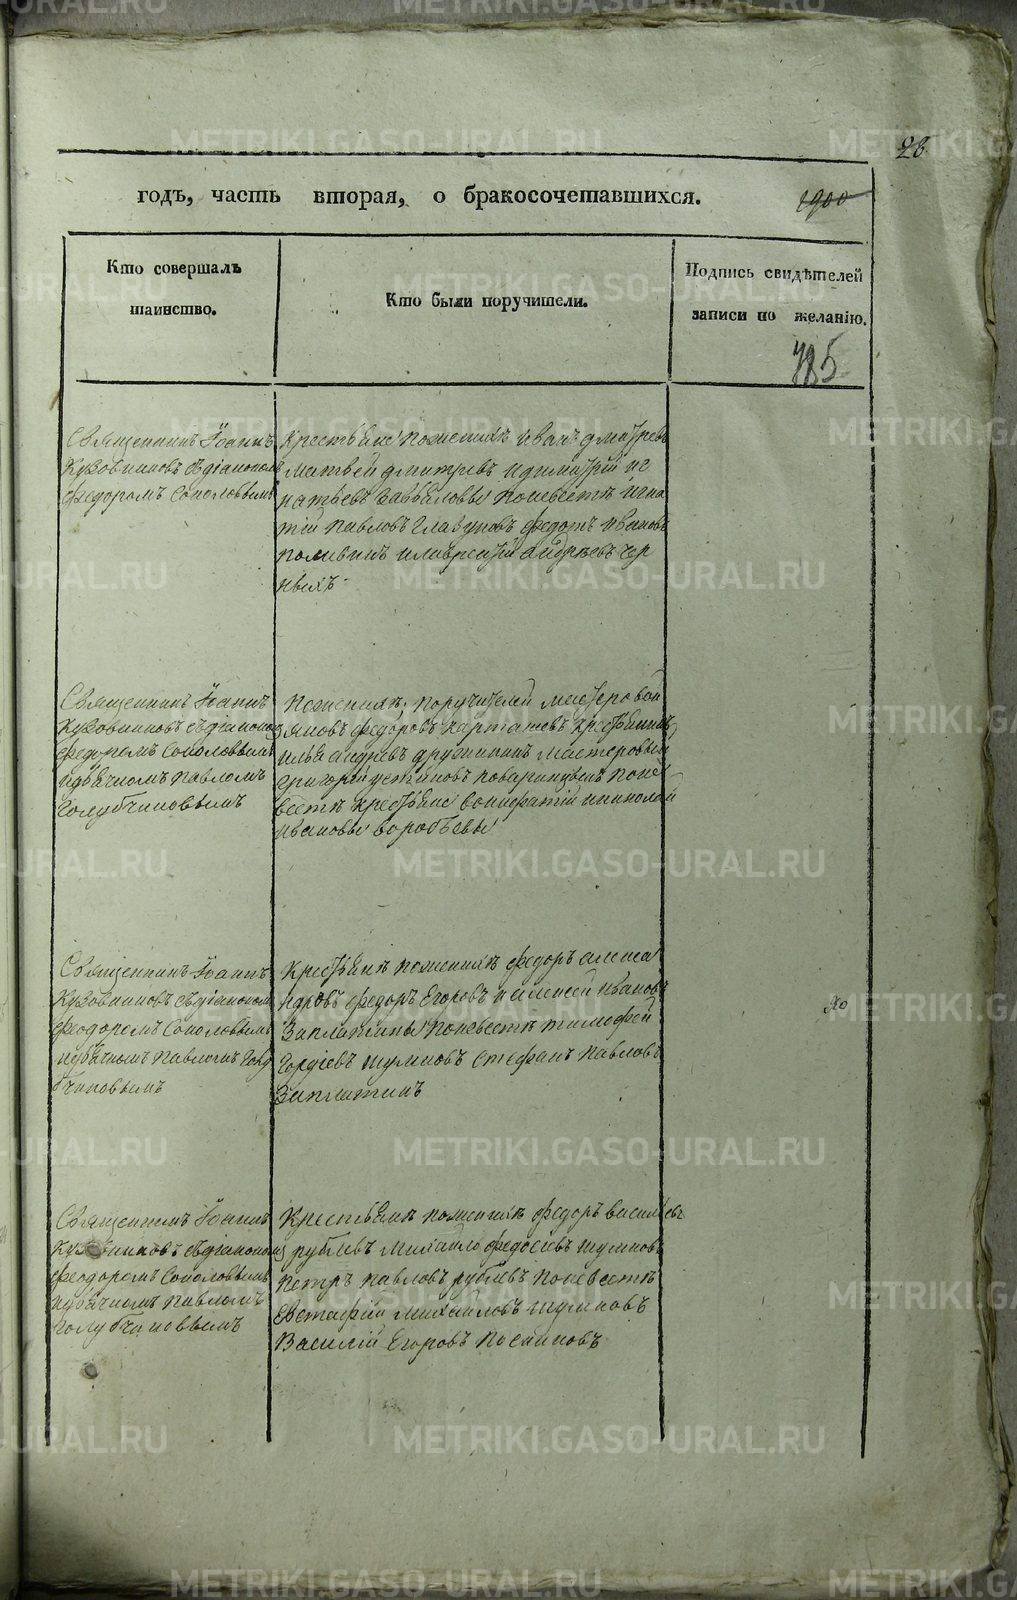 28.
годъ, часть вторая, о бракосочетавшихся.
1900
Кто совершалъ
таинство.
Кто были поручители.
Подпись свидѣтелей
записи по желанію.
785
Священникъ Іоаннъ
Кузовниковъ съ діакономъ
федоромъ Соколовымъ
Крестьяне поженихѣ Иванъ дмитревъ
Матвей дмитревъ идимитрій иг
натьевъ поневестѣ игна
тій павловъ Глазуновъ федоръ Ивановъ
андреевъ чер
ныхъ
Священникъ Іоаннъ
Кузовниковъ съ діакономъ
федоромъ Соколовымъ
идьячкомъ Павломъ
Голубчиковымъ
Поженихѣ поручители мастеровой
яковъ федоровъ карташевъ крестьянинъ
илья андревъ дружининъ мастеровый
григорій устиновъ поне
вестѣ крестьяне вонифатій иниколай
ивановы воробьевы
Священникъ Іоаннъ
Кузовниковъ съ діакономъ
феодоромъ Соколовымъ
идьячкомъ Павломъ Голу
бчиковымъ
Крестьяне поженихѣ федоръ алекса
ндровъ федоръ Егоровъ иалексей Ивановъ
Заплатины поневестѣ тимофей
Гордіевъ шумковъ Стефанъ Павловъ
Заплатинъ
Священникъ Іоаннъ
Кузовниковъ съ діакономъ
феодоромъ Соколовымъ
идьячкомъ Павломъ
Голубчиковымъ
Крестьяне поженихѣ федоръ васильевъ
рублевъ михайло федосеевъ шумковъ
петръ павловъ рублевъ поневестѣ
Евстафій михайловъ шумковъ
Василій Егоровъ
METRIKI.GASO-URAL.RU